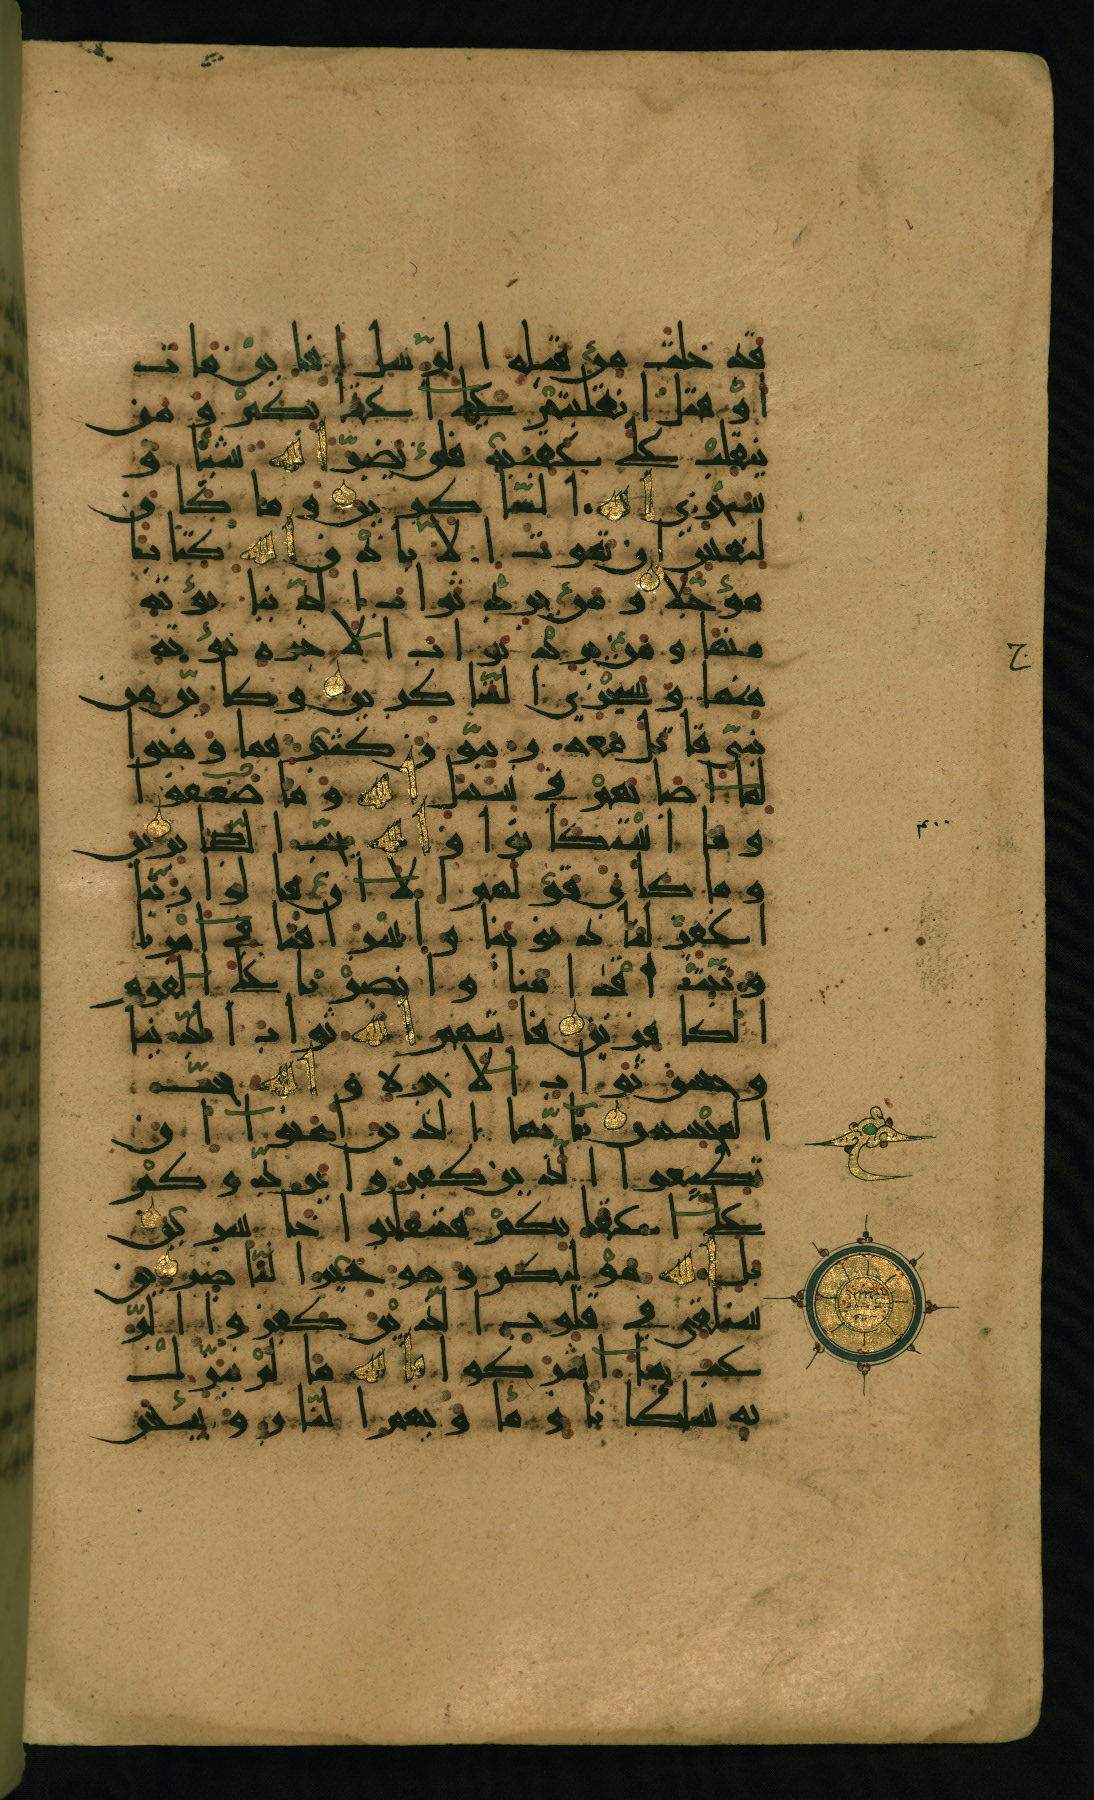 قد خلت من قبله الرسل افاين مات
او قتل انقلبتم على اعقابكم و من
ينقلب على عقبيه فلن يضر الله شيئا و
سيجزي الله الشاكرين و ما كان
لنفس ان تموت الا باذن الله كتابا
مؤجلا و من يرد ثواب الدنيا نؤته
منها و من يرد ثواب الاخرة نؤته
منها و سنجزي الشاكرين و كاين من
نبي قاتل معه ربيون كثير فما وهنوا
لما اصابهم في سبيل الله و ما ضعفوا
و ما استكانوا و الله يحب الصابرين
و ما كان قولهم الا ان قالوا ربنا
اغفر لنا ذنوبنا و اسرافنا في امرنا
و ثبت اقدامنا و انصرنا على القوم
الكافرين فاتهم الله ثواب الدنيا
و حسن ثواب الاخرة و الله يحب
المحسنين يايها الذين امنوا ان
تطيعوا الذين كفروا يردوكم
على اعقابكم فتنقلبوا خاسرين
بل الله موليكم و هو خير الناصرين
سنلقي في قلوب الذين كفروا الر
عب بما اشركوا بالله ما لم ينزل
به سلطانا و ماويهم النار و بئس
ج